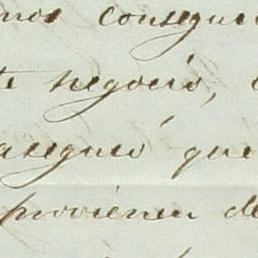 mos consegui
te negocio,
aseguró que
provienen de